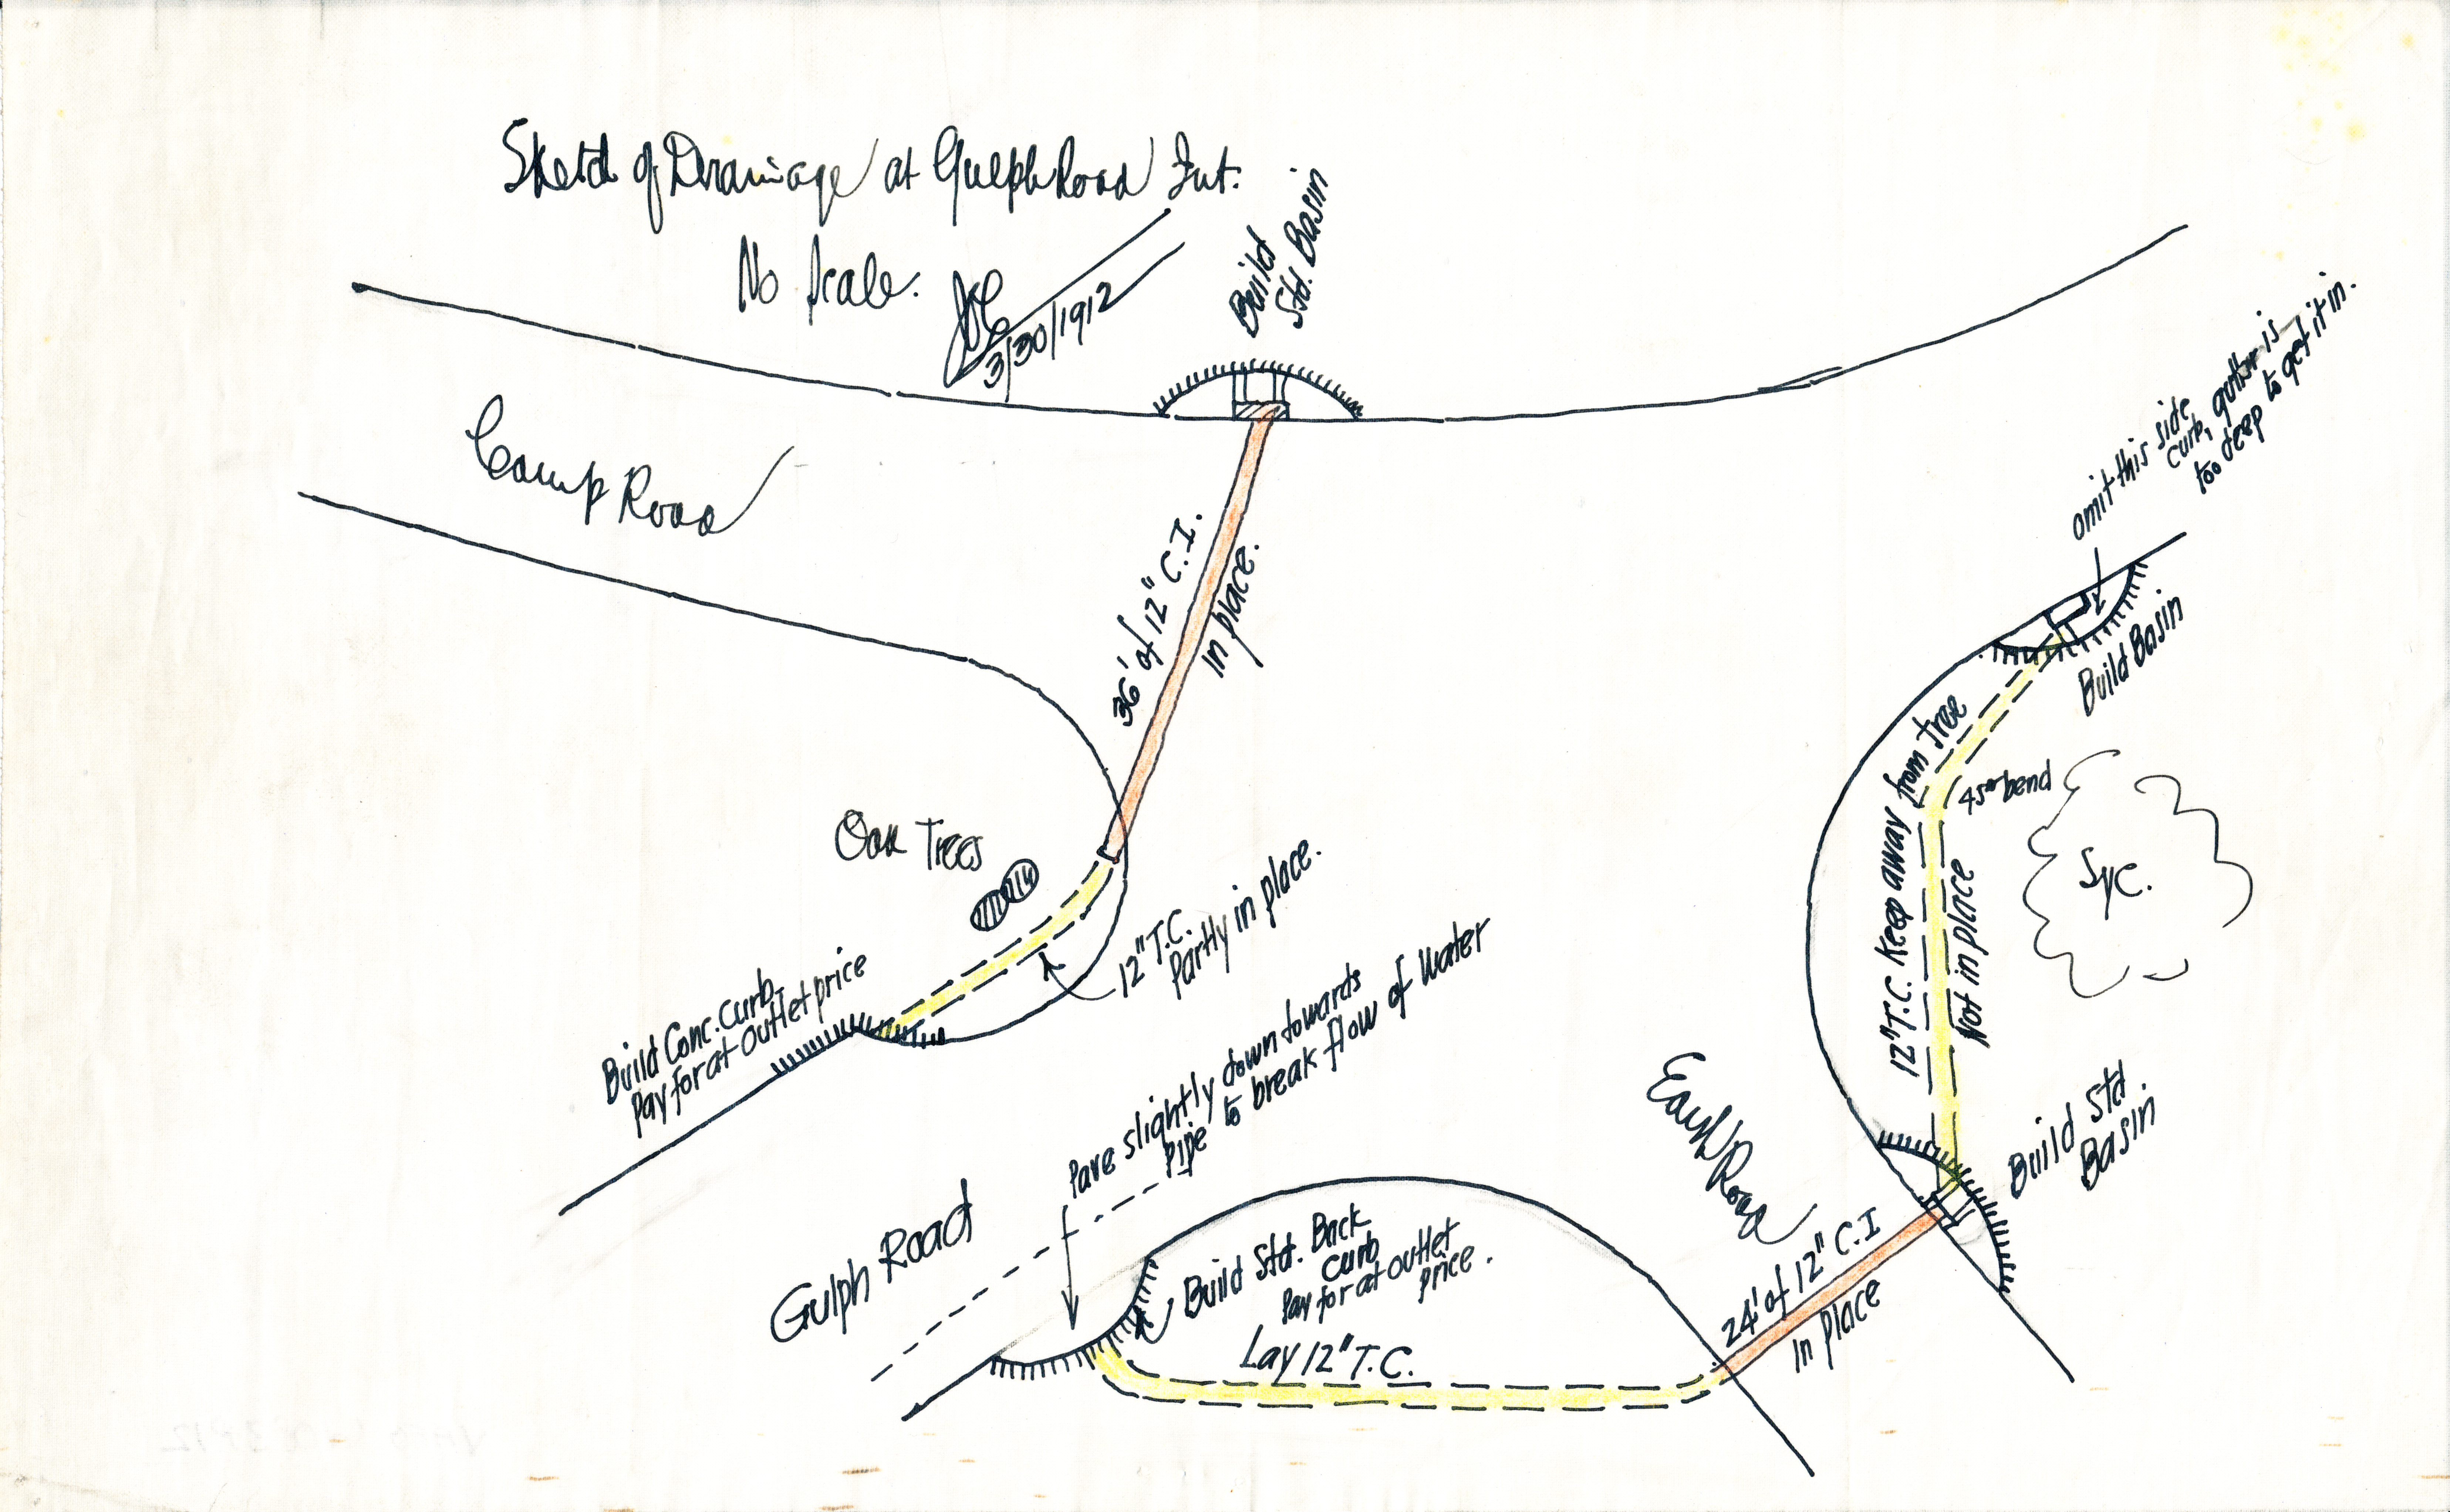 Sketch of Drainage at Gulph Road Int.
No Scale.
3/30/1912
Build
Std. Basin
Camp Road
omit this side
curb, gutter is
too deep to get it in.
36' of 12" C.I.
in place.
Build Basin
12" T.C. Keep away from tree
Not in place
45° bend
Syc.
Oak Trees
12" T.C.
Partly in place.
Build Conc. Curb
Pay for at outlet price
Pave slightly down towards
pipe to break flow of water
Build Std.
Basin
Road
Gulph Road
Build Std. Back
Curb
Pay for at outlet
price.
24' of 12" C.I
in place
Lay 12" T.C.